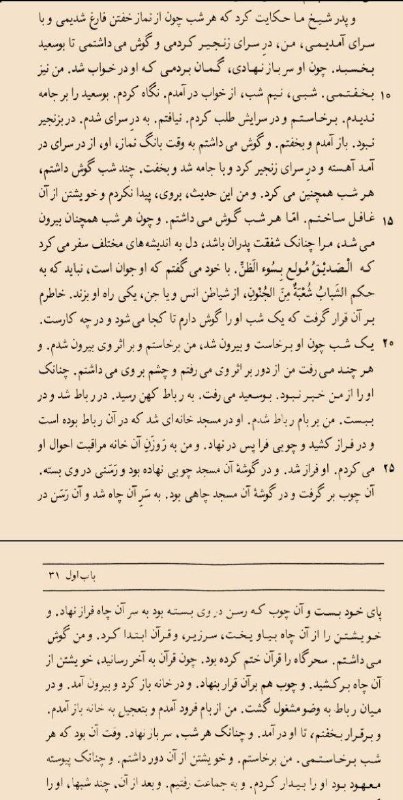 و پدر شیخ ما حکایت کرد که هر شب چون از نماز خفتن فارغ شدیمی و با
سرای آمدیمی، من، درِ سرای زنجیر کردمی و گوش می‌داشتمی تا بوسعید
بخسبد. چون او سر باز نهادی، گمان بردمی که او در خواب شد. من نیز
بخفتمی. شبی، نیم شب، از خواب در آمدم. نگاه کردم. بوسعید را بر جامه ۱۰
ندیدم. برخاستم و در سرایش طلب کردم. نیافتم. به در سرای شدم. در بزنجیر
نبود. باز آمدم و بخفتم. و گوش می داشتم به وقت بانگ نماز، او، از در سرای در
آمد آهسته و در سرای زنجیر کرد و با جامه شد و بخفت. چند شب گوش داشتم،
هر شب همچنین می کرد. و من این حدیث، بروی، پیدا نکردم و خویشتن از آن
غافل ساختم. امّا هر شب گوش می داشتم. و چون هر شب همچنان بیرون ۱۵
می شد، مرا چنانک شفقت پدران باشد، دل به اندیشه‌های مختلف سفر می کرد
که الْصَدیقُ مُولعٍ بِسُوء الظَنِّ. با خود می گفتم که او جوان است، نباید که به
حکم الشَبابُ شُعْبَةٌ مِنَ الجُنُونِ، از شیاطن انس و یا جن، یکی راه او بزند. خاطرم
بر آن قرار گرفت که یک شب او را گوش دارم تا کجا می‌شود و در چه کارست.
یک شب چون او برخاست و بیرون شد، من برخاستم و بر اثر وی بیرون شدم. و ۲۰
هر چند می رفت من از دور بر اثر وی می رفتم و چشم بر وی می داشتم. چنانک
او را از من خبر نبود. بوسعید می رفت. به رباط کهن رسید. در رباط شد و در
ببست. من بر بام رباط شدم. او در مسجد خانه‌ای شد که در آن رباط بوده است
و در فراز کشید و چوبی فرا پس در نهاد. و من به رَوزَنِ آن خانه مراقبت احوال او
می کردم. او فراز شد. و در گوشهٔ آن مسجد چوبی نهاده بود و رَسَنی در وی بسته. ۲۵
آن چوب بر گرفت و در گوشهٔ آن مسجد چاهی بود. به سَرِ آن چاه شد و آن رَسَن در
باب اول ۳۱
پای خود بست و آن چوب که رسن در وی بسته بود به سر آن چاه فراز نهاد. و
خویشتن را از آن چاه بیاویخت، سرزیر، و قرآن ابتدا کرد. و من گوش
می‌داشتم. سحرگاه را قرآن ختم کرده بود. چون قرآن به آخر رسانید، خویشتن از
آن چاه برکشید. و چوب هم بر آن قرار بنهاد. و در خانه باز کرد و بیرون آمد. و در
میان رباط به وضو مشغول گشت. من از بام فرود آمدم و بتعجیل به خانه باز آمدم.
و برقرار بخفتم، تا او در آمد. و چنانک هر شب، سر باز نهاد. وقت آن بود که هر
شب برخاستمی. من برخاستم. و خویشتن از آن دور داشتم. و چنانک پیوسته
معهود بود او را بیدار کردم. و به جماعت رفتیم. و بعد از آن، چند شبها، او را